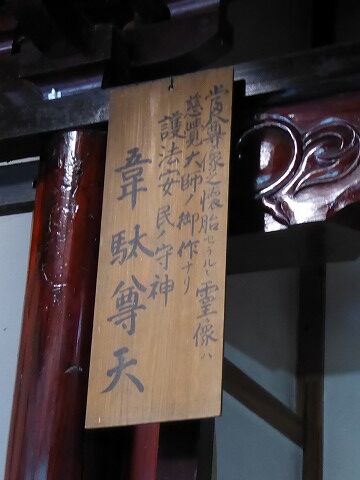 當尊像之懐胎セラルヽ霊像ハ
慈覺大師ノ御作ナリ
護法安民ノ守神
韋駄尊天